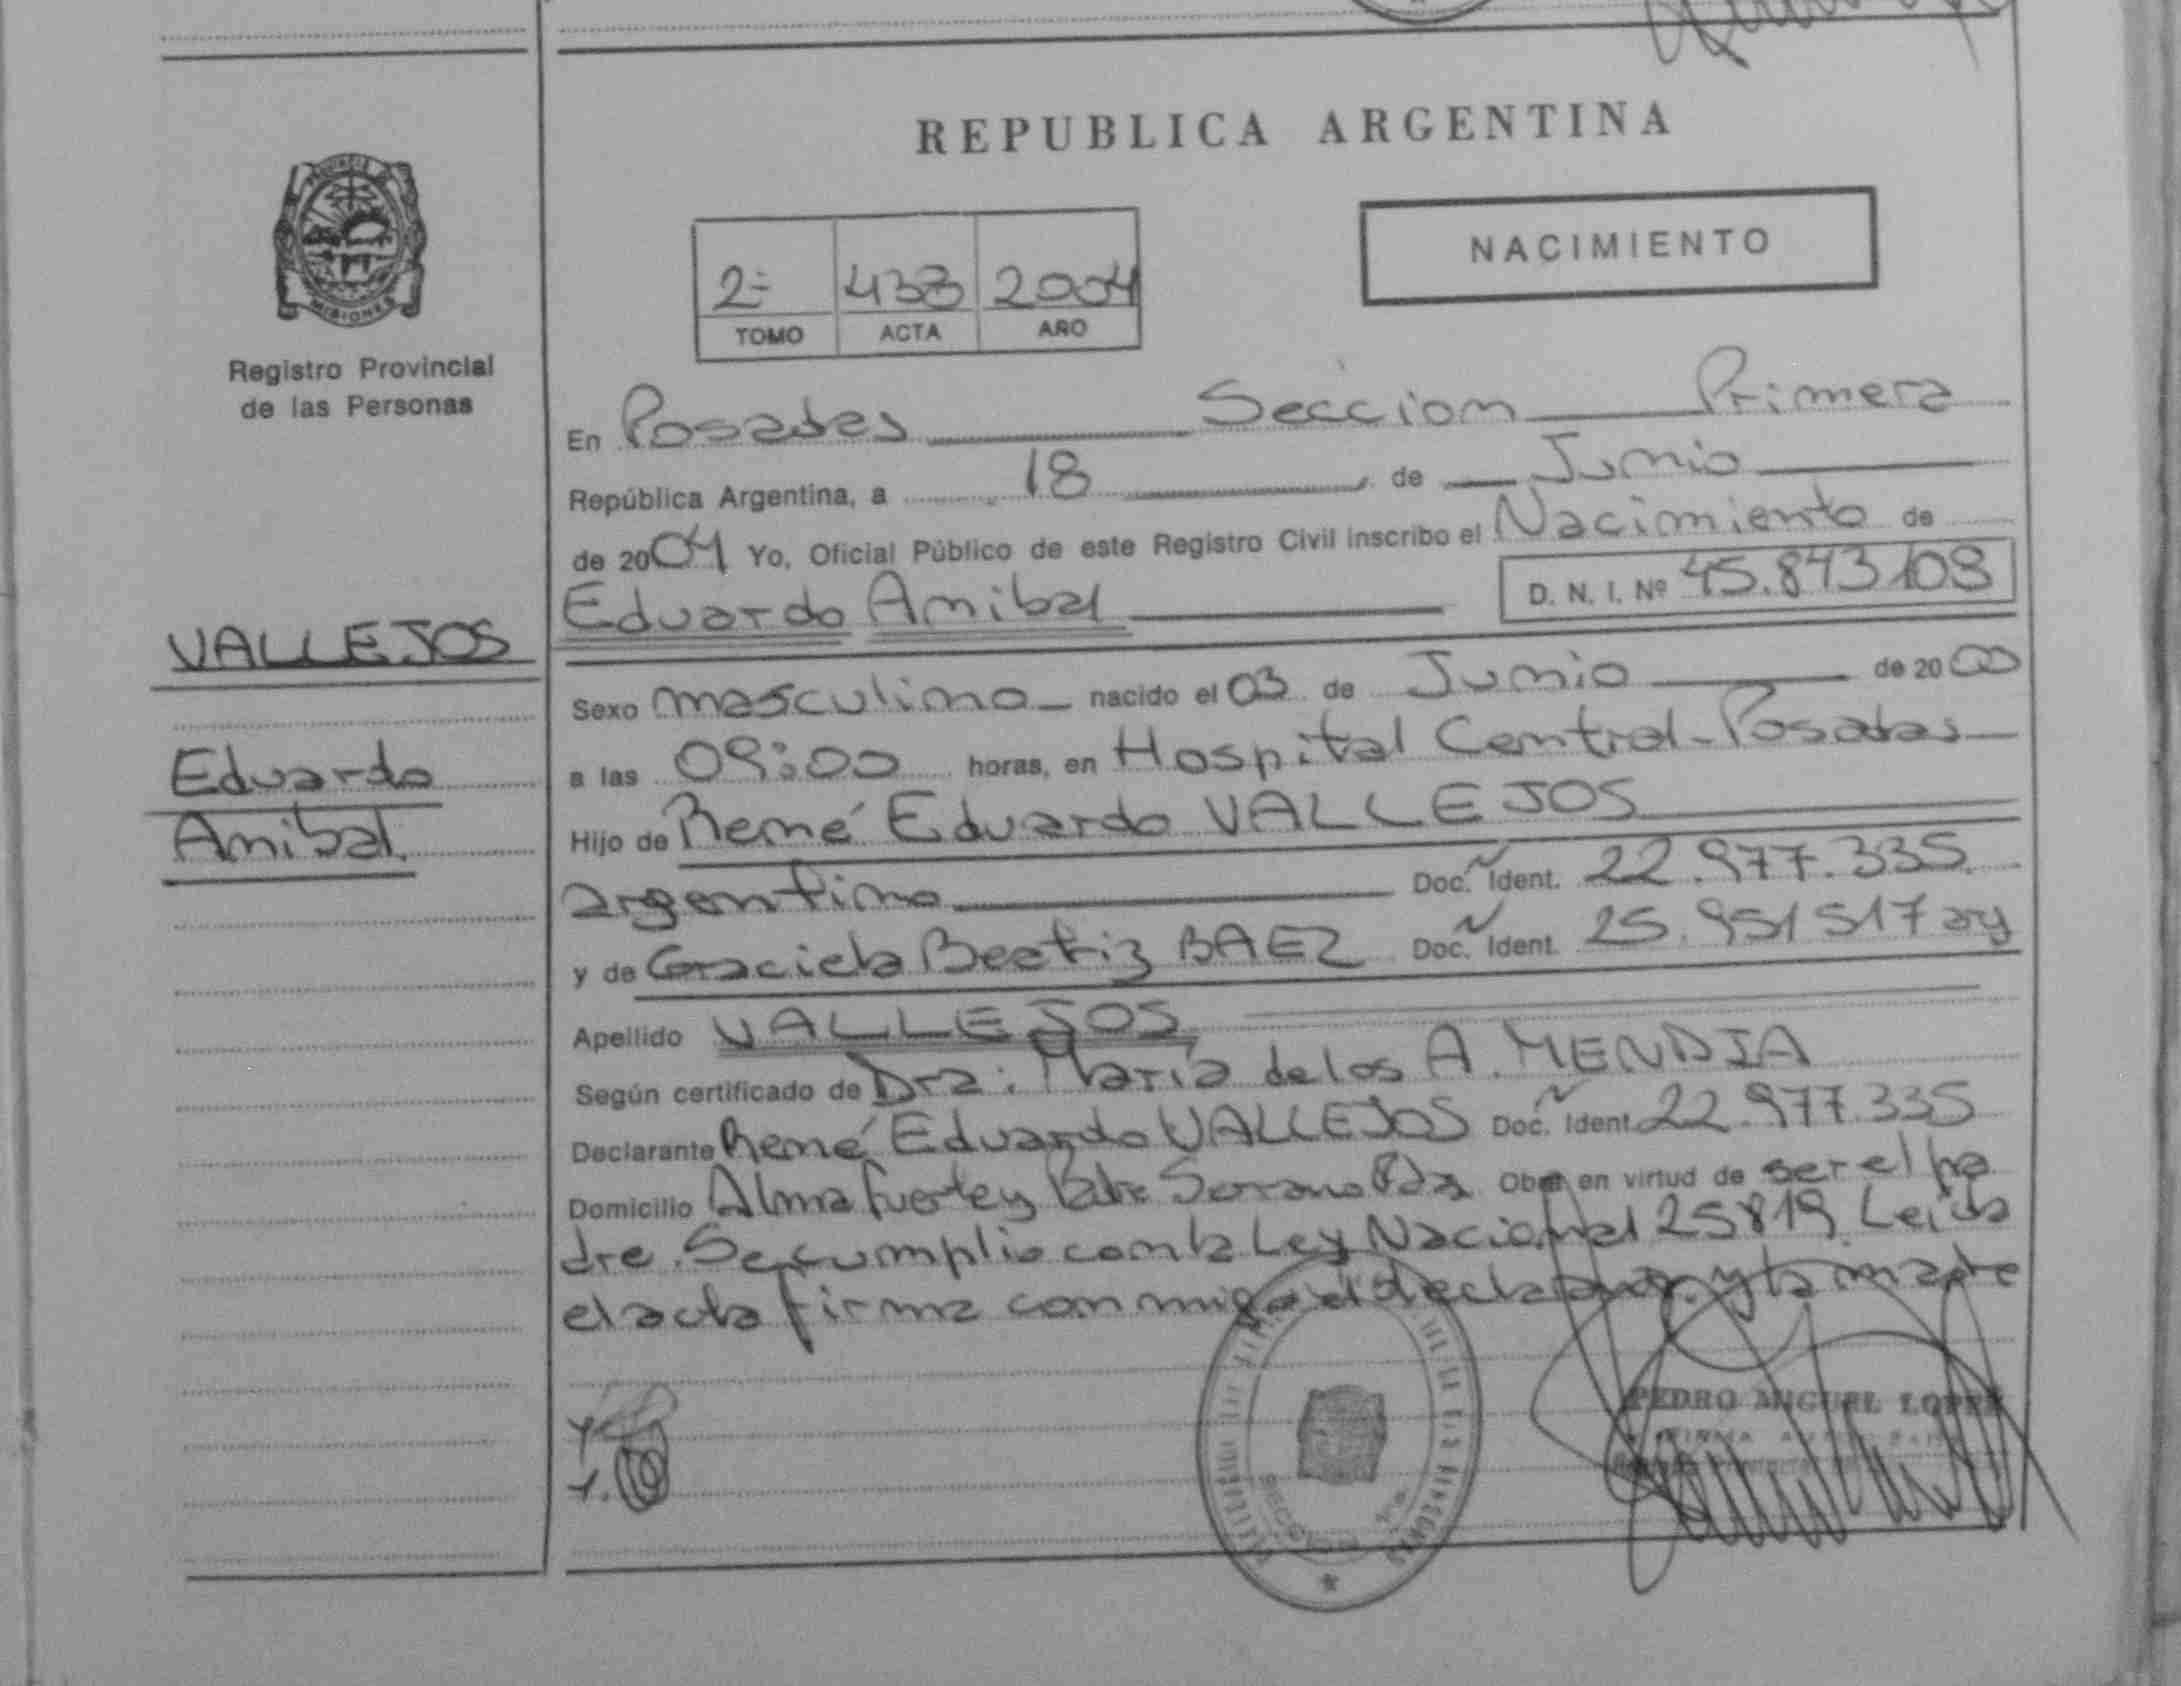 REPUBLICA ARGENTINA
PROVINCIA DE
MISIONES
Registro Provincial
de las Personas
NACIMIENTO
2º 438 2004
TOMO ACTA AÑO
En Posadas Sección Primera
República Argentina, a 18 de Junio
de 2004 Yo, Oficial Público de este Registro Civil inscribo el Nacimiento de
Eduardo Anibal D. N. I. Nº 45.843.109
VALLEJOS
Eduardo
Anibal.
Sexo masculino nacido el 03 de Junio de 2000
a las 09:00 horas, en Hospital Central-Posadas
Hijo de René Eduardo VALLEJOS
argentino Doc. Ident. 22.977.335.
y de Graciela Beatriz BAEZ Doc. Ident. 25.951517 arg
Apellido VALLEJOS
Según certificado de Dra: María de los A. MENDIA
Declarante René Eduardo VALLEJOS Doc. Ident. 22.977.335
Domicilio Almafuerte y Padre Serrano Pdas Obra en virtud de ser el pa
dre. Se cumplio con la Ley Nacional 25819. Leida
el acta firma conmigo el declarante y la madre
PEDRO MIGUEL LOPEZ